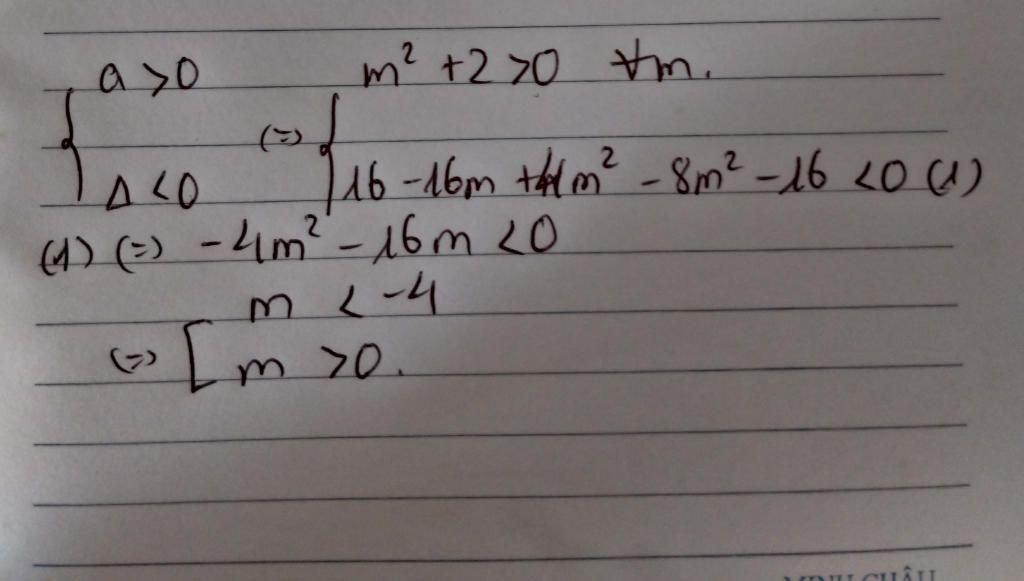 a >0 m² +2 >0 ∀m.
(=)
Δ <0 16 -16m +4m² - 8m² -16 <0 (1)
(1) (=) -4m² - 16m <0
m < -4
(=) [ m >0.